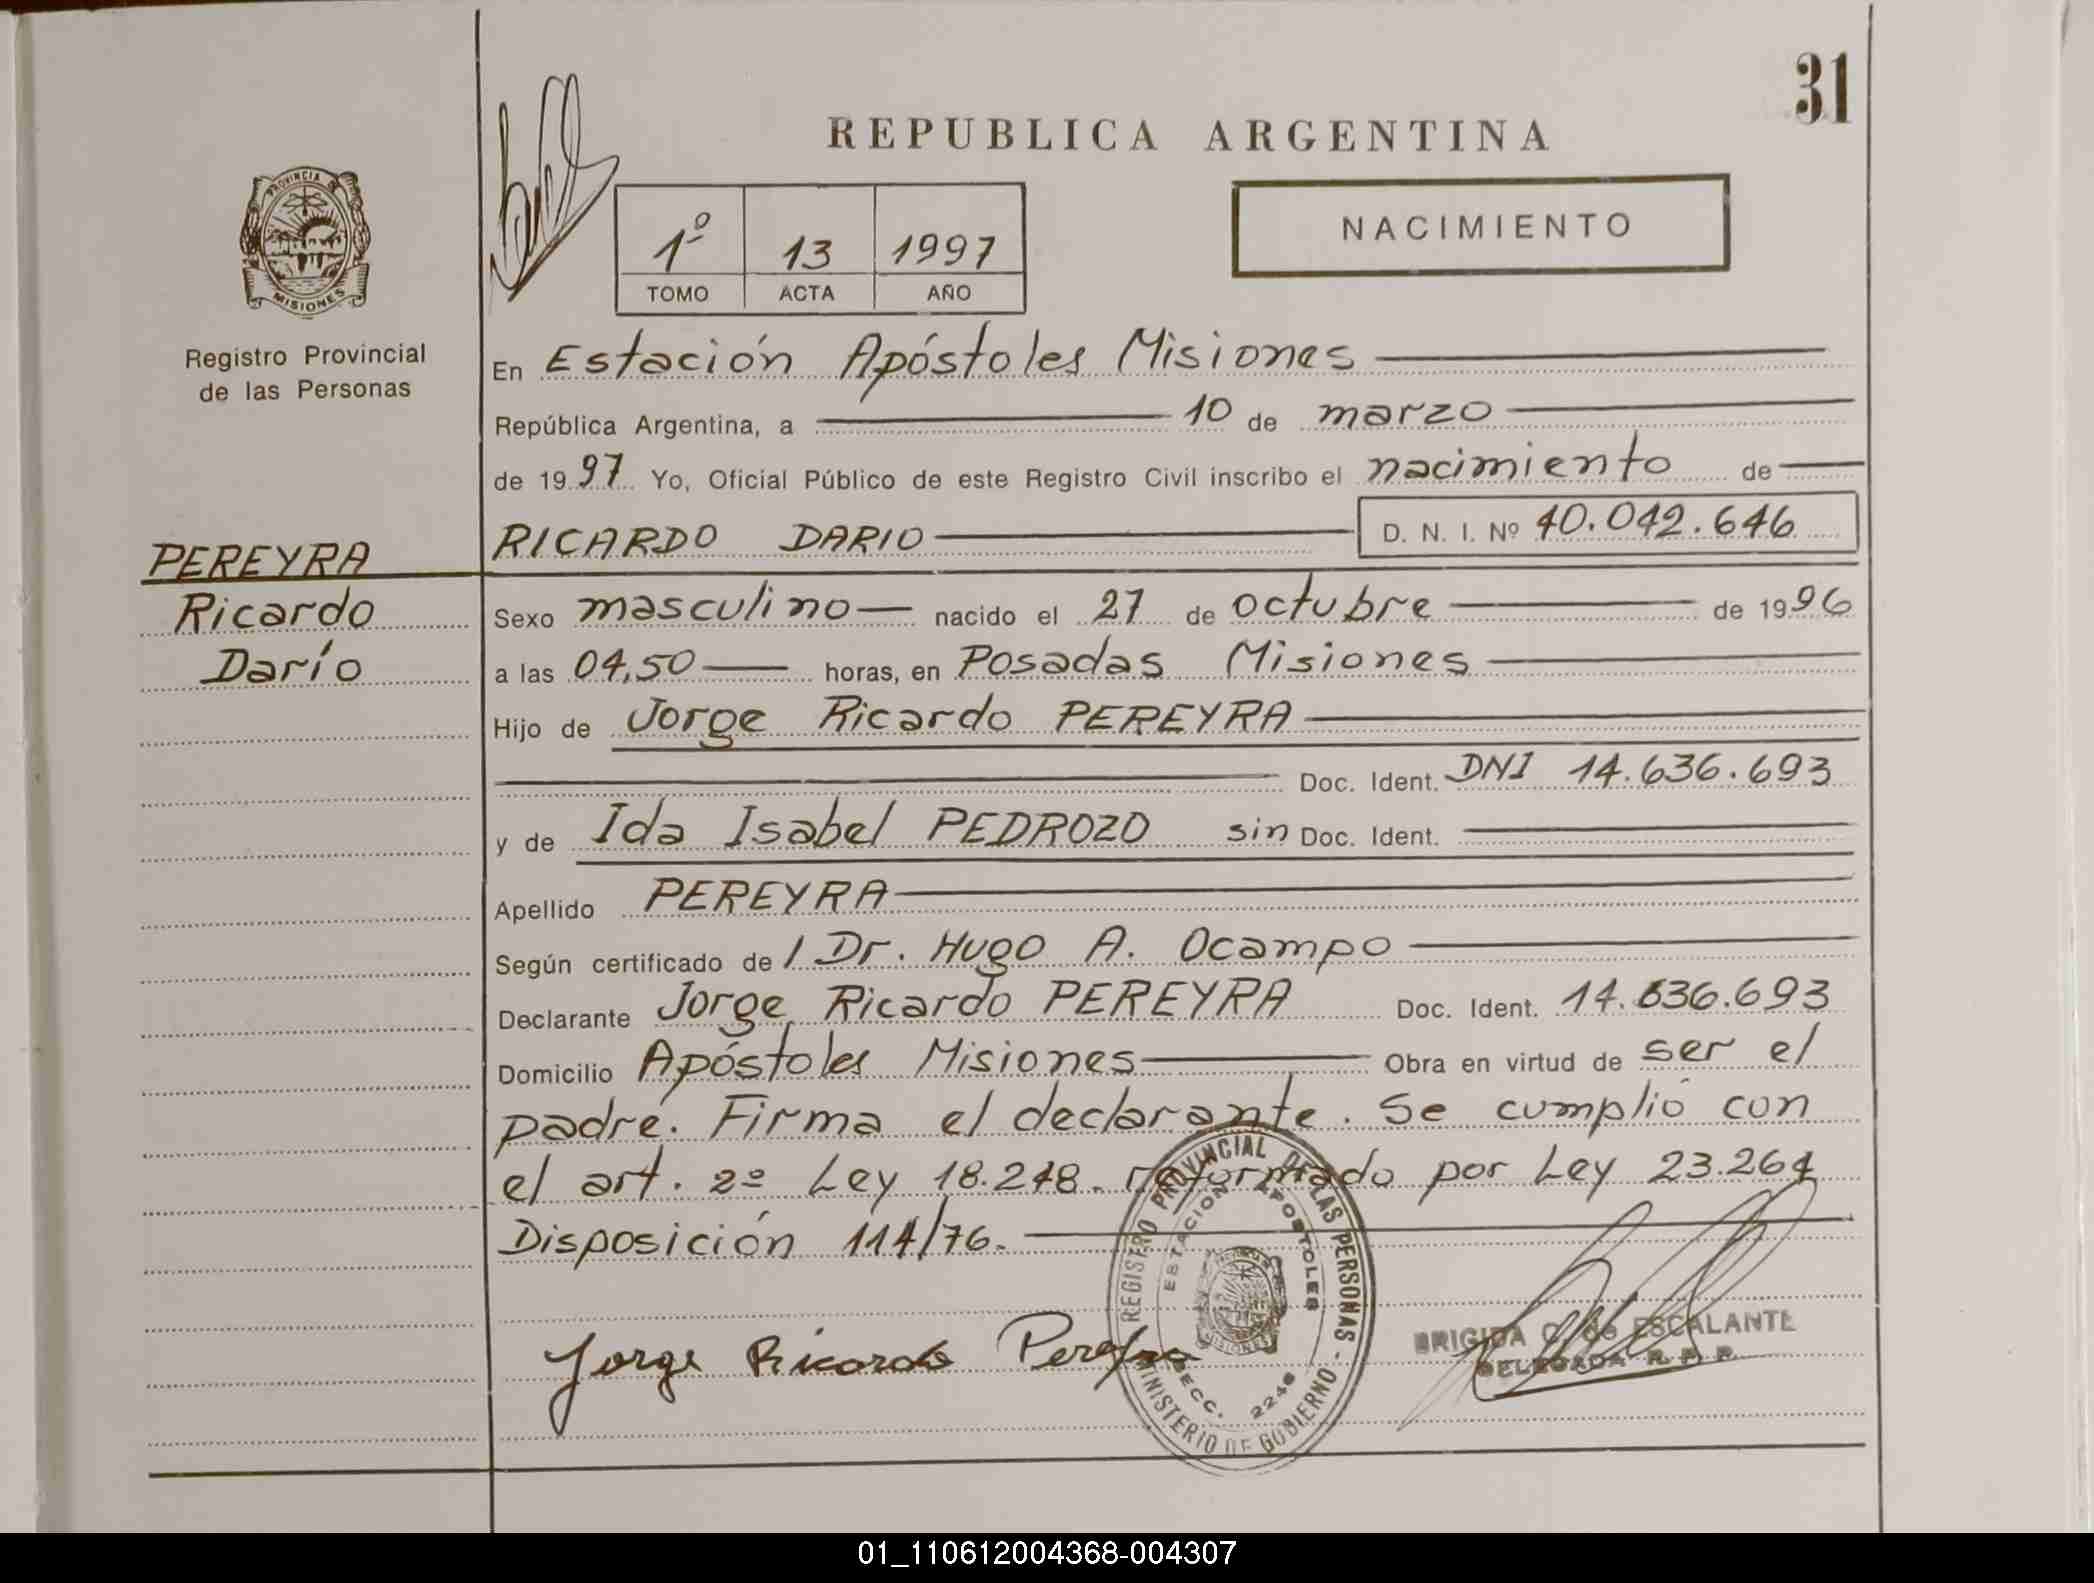 31
REPUBLICA ARGENTINA
PROVINCIA DE
MISIONES
Registro Provincial
de las Personas
1º 13 1997
TOMO ACTA AÑO
NACIMIENTO
En Estación Apóstoles Misiones
República Argentina, a 10 de marzo
de 1997 Yo, Oficial Público de este Registro Civil inscribo el nacimiento de
RICARDO DARIO D. N. I. Nº 40.042.646
PEREYRA
Ricardo
Darío
Sexo masculino nacido el 27 de octubre de 1996
a las 04,50 horas, en Posadas Misiones
Hijo de Jorge Ricardo PEREYRA
Doc. Ident. DNI 14.636.693
y de Ida Isabel PEDROZO sin Doc. Ident.
Apellido PEREYRA
Según certificado de l Dr. Hugo A. Ocampo
Declarante Jorge Ricardo PEREYRA Doc. Ident. 14.636.693
Domicilio Apóstoles Misiones Obra en virtud de ser el
padre. Firma el declarante. Se cumplió con
el art. 2º Ley 18.248. reformado por Ley 23.264
Disposición 114/76.
Jorge Ricardo Pereyra
REGISTRO PROVINCIAL DE LAS PERSONAS -
MINISTERIO DE GOBIERNO
ESTACION APOSTOLES
SECC. 2246
BRIGIDA C. de ESCALANTE
DELEGADA R. P. P.
01_110612004368-004307